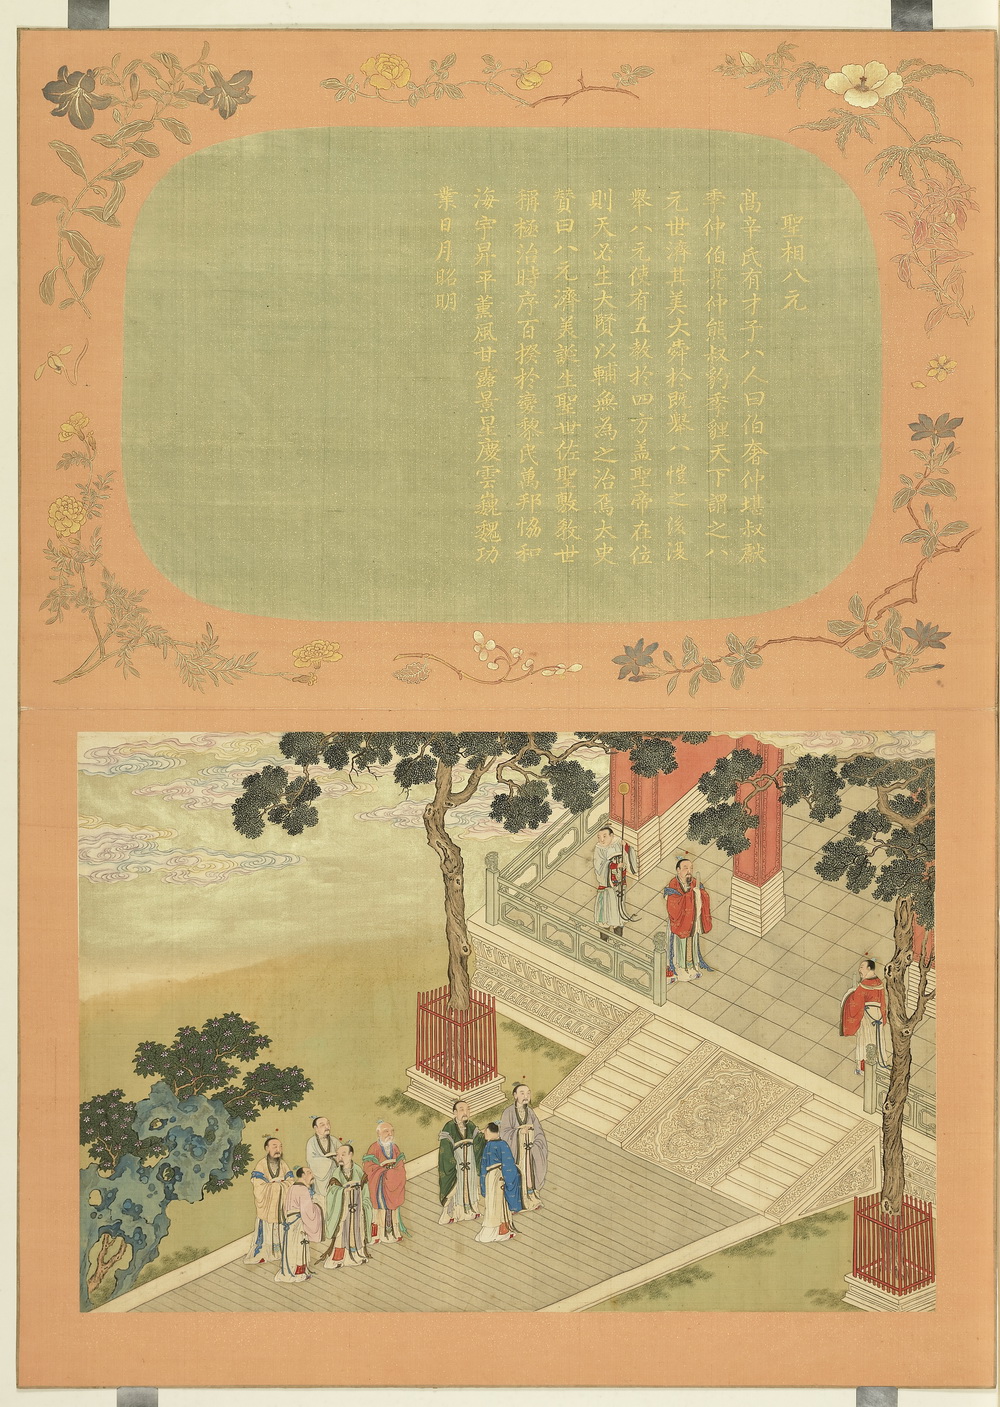 聖相八元
髙辛氏有才子八人曰伯奮仲堪叔獻
季仲伯虎仲熊叔豹季貍天下謂之八
元世濟其美大舜於既舉八愷之後復
舉八元使布五教於四方蓋聖帝在位
則天必生大賢以輔無為之治焉太史
贊曰八元濟美誕生聖世佐聖敷教世
稱極治時序百揆於變黎民萬邦恊和
海宇昇平薰風甘露景星慶雲巍巍功
業日月昭明